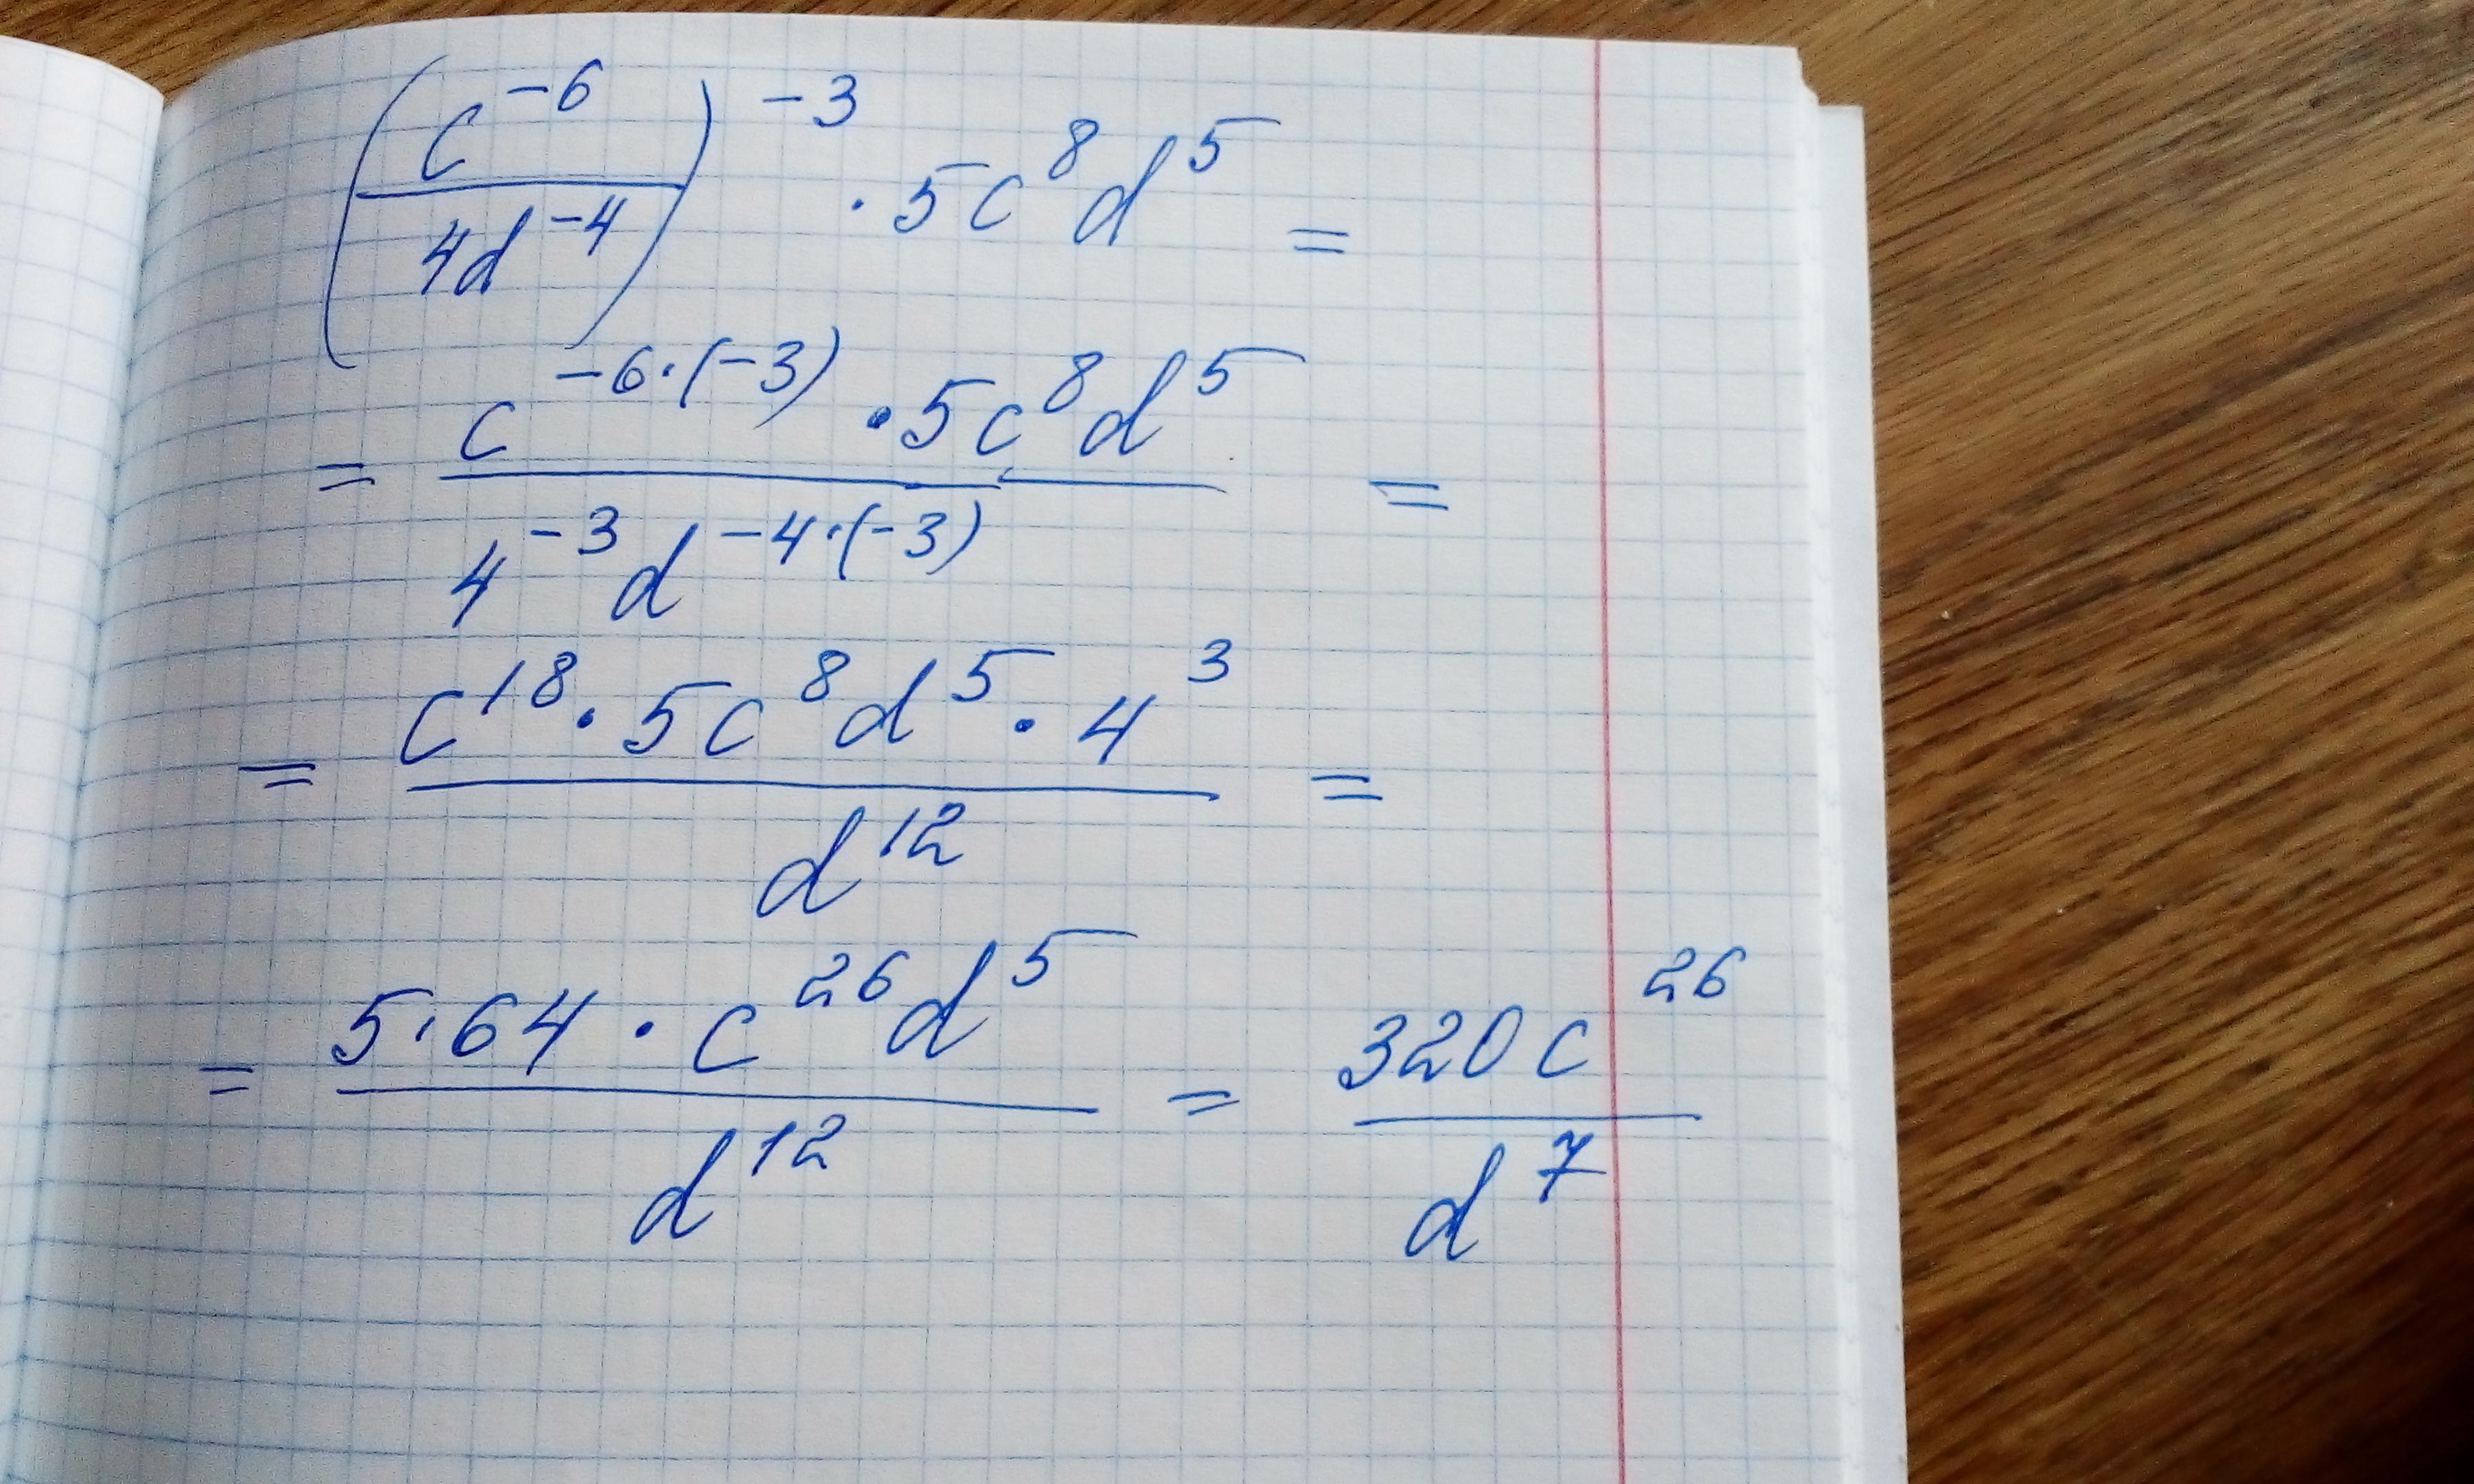 (c⁻⁶/4d⁻⁴)⁻³ · 5c⁸d⁵ =
= c⁻⁶·⁽⁻³⁾ · 5c⁸d⁵ / 4⁻³d⁻⁴·⁽⁻³⁾ =
= c¹⁸ · 5c⁸d⁵ · 4³ / d¹² =
= 5·64 · c²⁶d⁵ / d¹² = 320c²⁶ / d⁷